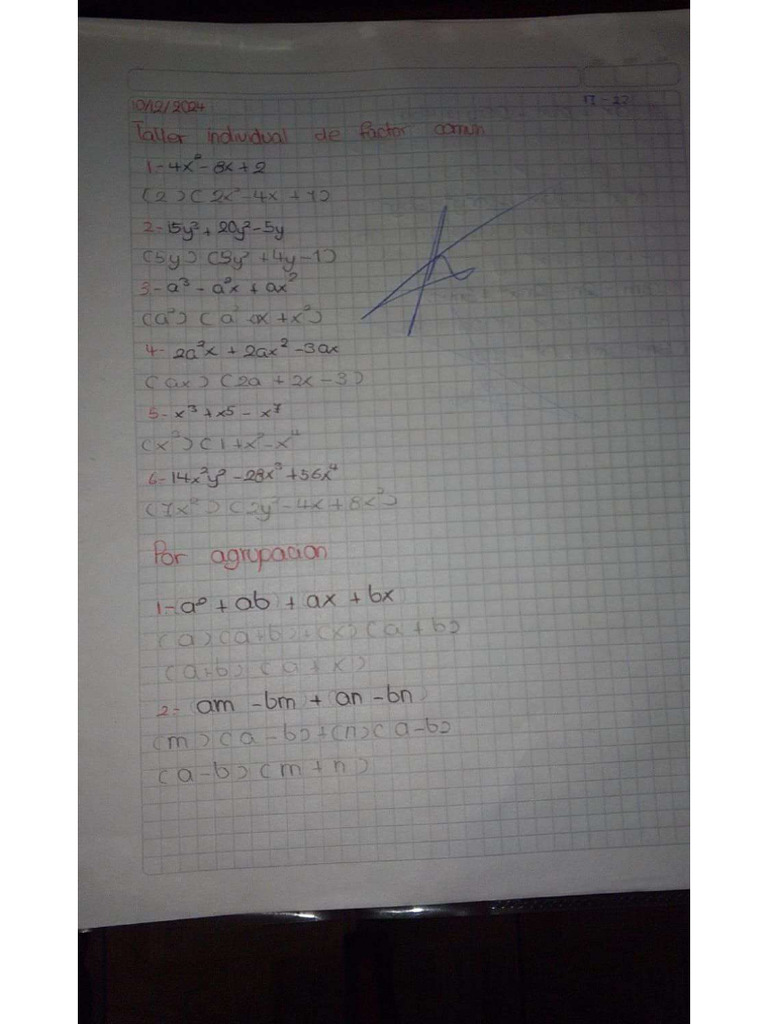 10/12/2024
Taller individual de factor comun
1- 4x² - 8x + 2
(2) (2x² - 4x + 1)
2- 15y³ + 20y² - 5y
(5y) (5y² + 4y - 1)
3- a³ - a²x + ax²
(a²) (a² + x + x²)
4- 2a²x + 2ax² - 3ax
(ax) (2a + 2x - 3)
5- x³ + x5 - x⁷
(x³) (1 + x² - x⁴
6- 14x²y² - 28x³ + 56x⁴
(7x²) (2y² - 4x + 8x²)
Por agrupacion
1- a² + ab + ax + bx
(a) (a + b) + (x) (a + b)
(a+b) (a + x)
2- am - bm + an - bn
(m) (a - b) + (n) (a - b)
(a - b) (m + n)